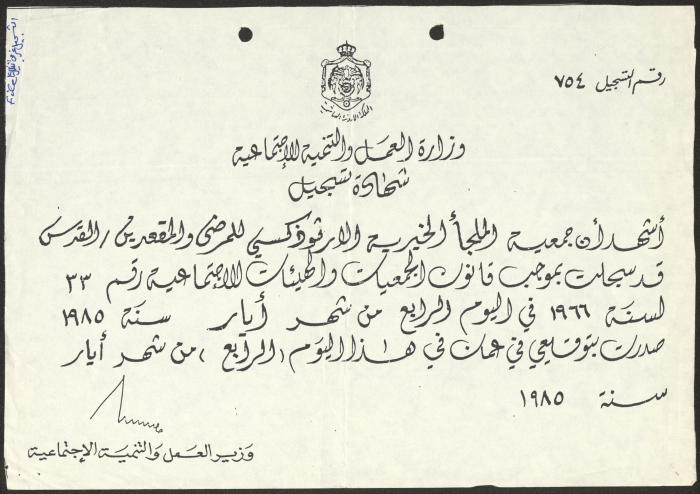 رقم التسجيل ٧٥٤
المملكة الاردنية الهاشمية
وزارة العمل والتنمية الإجتماعية
شهادة تسجيل
أشهد أن جمعية الملجأ الخيرية الارثوذكسي للمرضى والمقعدين / القدس
قد سجلت بموجب قانون الجمعيات والهيئات الاجتماعية رقم ٣٣
لسنة ١٩٦٦ في اليوم الرابع من شهر أيار سنة ١٩٨٥
صدرت بتوقيعي في عمان في هذا اليوم (الرابع) من شهر أيار
سنة ١٩٨٥
وزير العمل والتنمية الإجتماعية